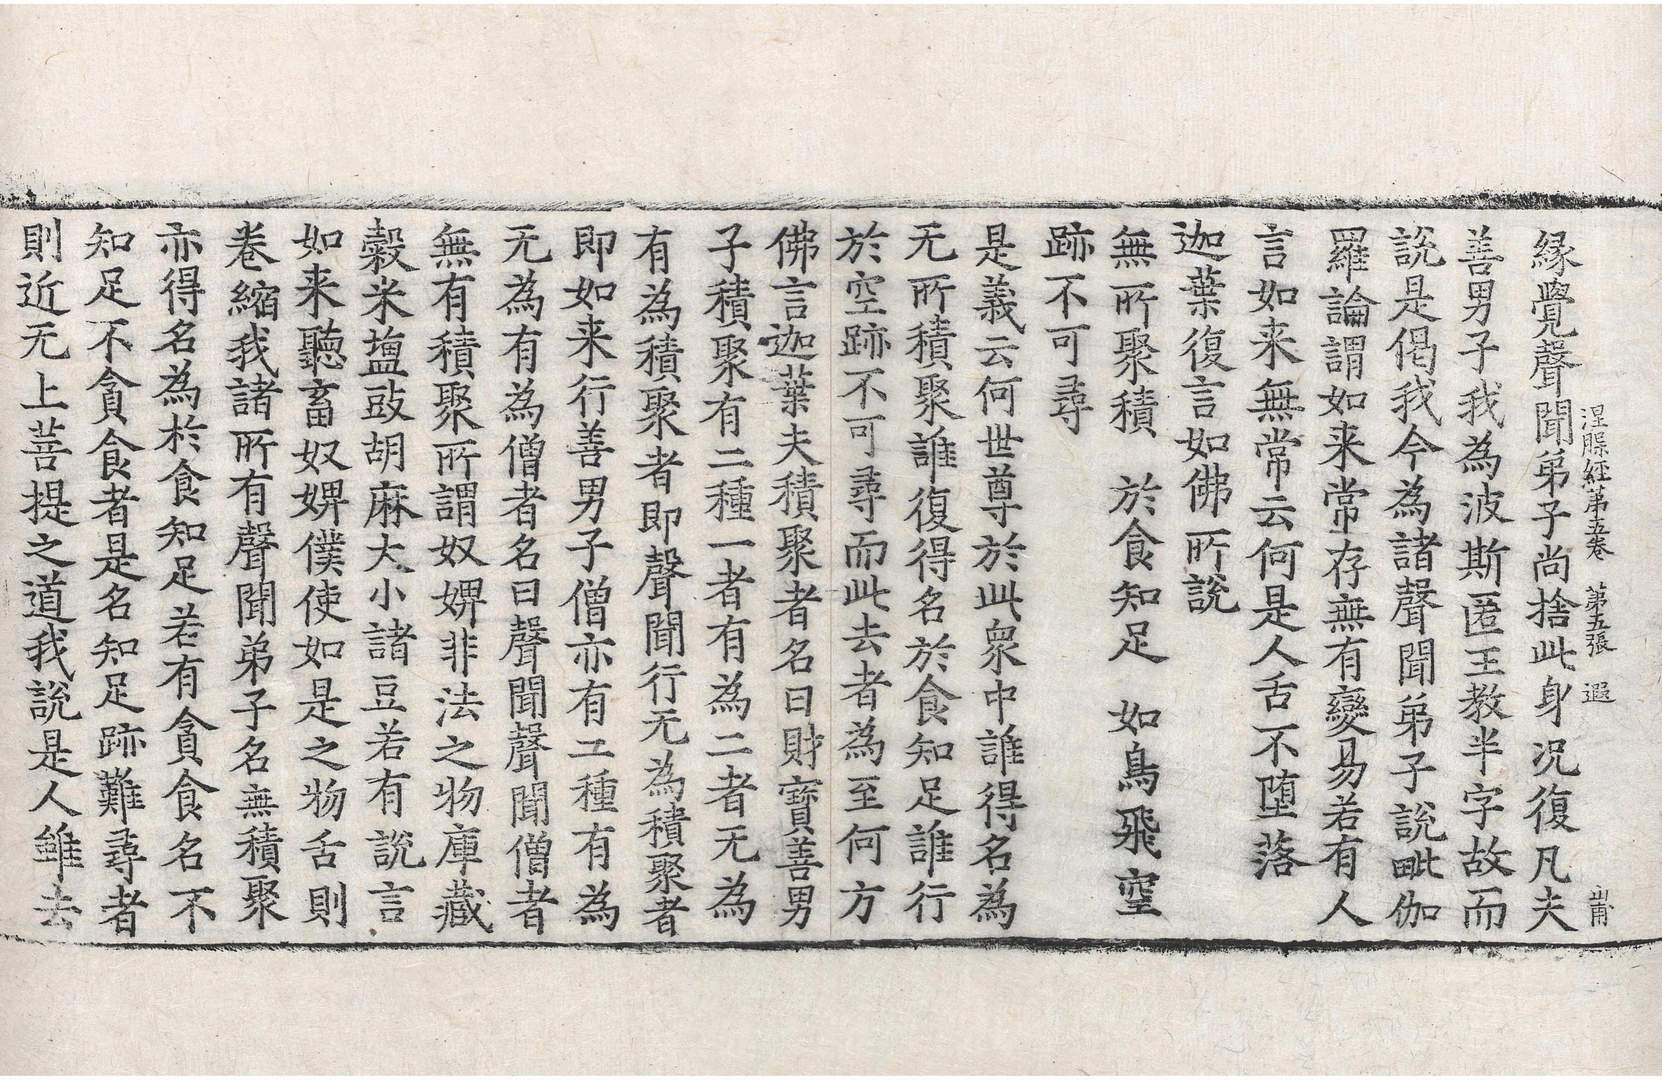 涅槃經第五卷 第五張 遐 甫
縁覺聲聞弟子尚捨此身况復凡夫
善男子我為波斯匿王教半字故而
説是偈我今為諸聲聞弟子説毗伽
羅論謂如来常存無有變易若有人
言如来無常云何是人舌不墮落
迦葉復言如佛所説
無所聚積 於食知足 如鳥飛空
跡不可尋
是義云何世尊於此衆中誰得名為
无所積聚誰復得名於食知足誰行
於空跡不可尋而此去者為至何方
佛言迦葉夫積聚者名曰財寶善男
子積聚有二種一者有為二者无為
有為積聚者即聲聞行无為積聚者
即如来行善男子僧亦有二種有為
无為有為僧者名曰聲聞聲聞僧者
無有積聚所謂奴婢非法之物庫藏
穀米塩豉胡麻大小諸豆若有説言
如来聽畜奴婢僕使如是之物舌則
卷縮我諸所有聲聞弟子名無積聚
亦得名為於食知足若有貪食名不
知足不貪食者是名知足跡難尋者
則近无上菩提之道我説是人雖去